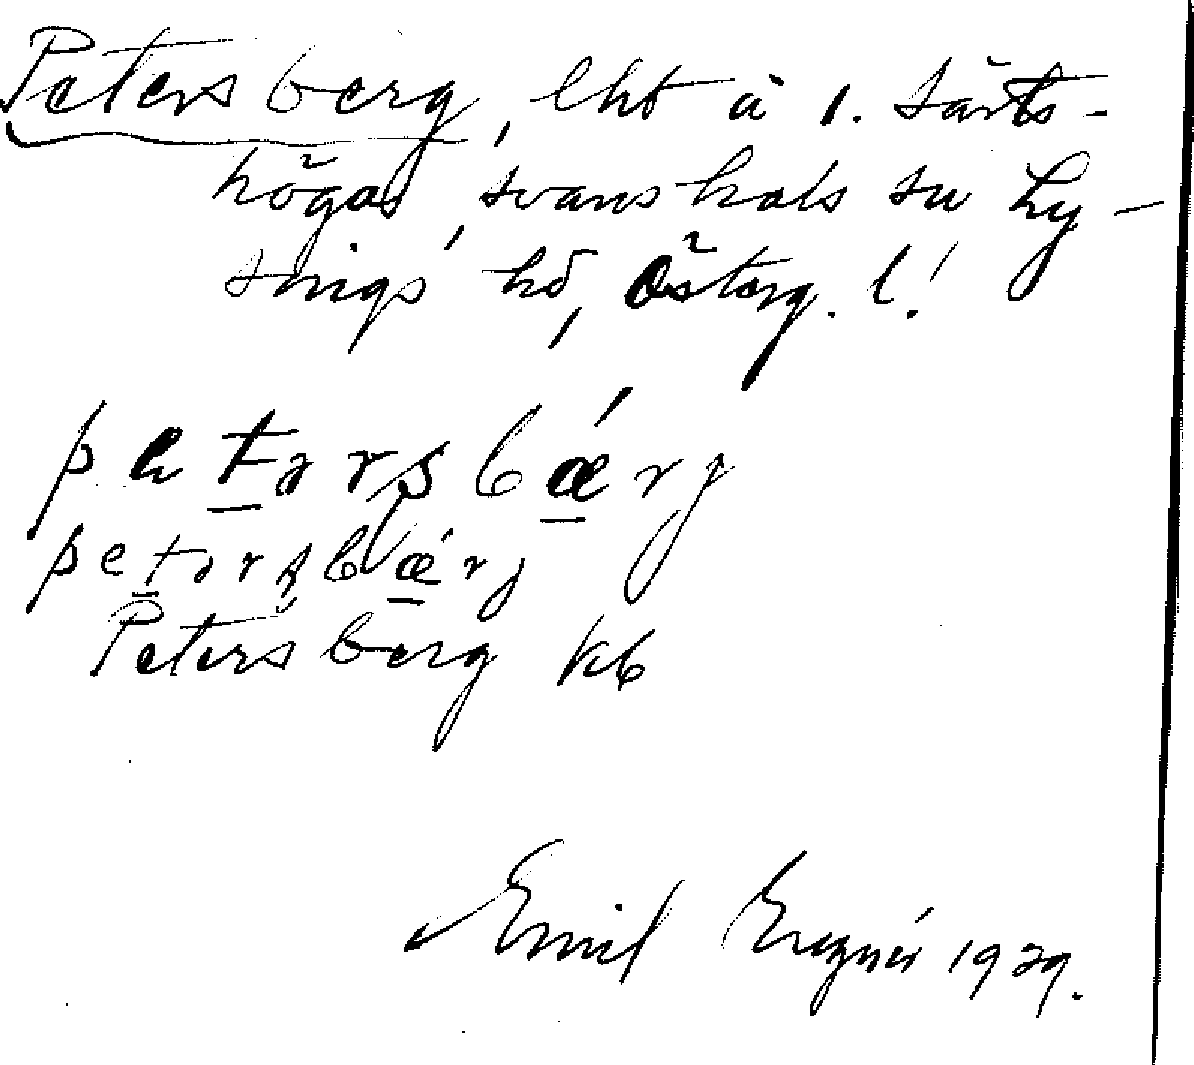 Petersberg, lht å 1. Särts-
högas, Svanshals sn Ly-
sings hd, Österg. l.
petərsbǽrj
petərsbǽrj
Petersberg kb
Emil 1929.